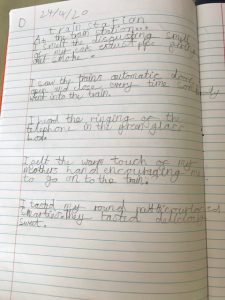 D 24/4/20
train station
At the train station...
I smelt the disgusting smell
hot smoke.
I saw the trains automatic doors
open and close every time somebody
went into the train.
I heard the ringing of the
telephone in the green glass
box.
I felt the touch of my
mothers hand encouraging me
to go on to the train.
I tasted my round multicoloured
smarties they tasted delicious
sweet.